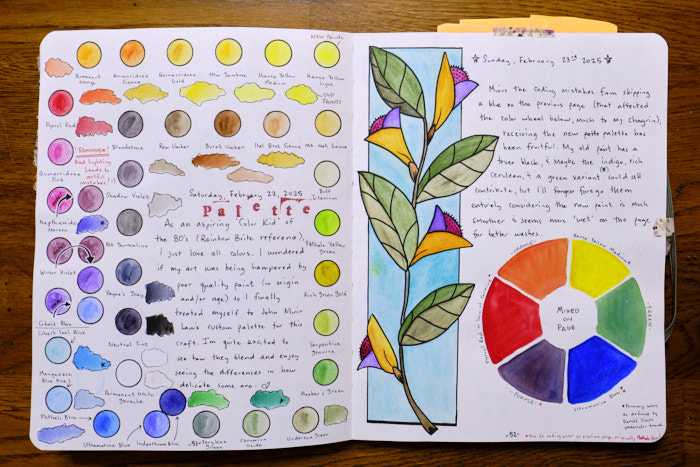 New Paints
Permanent Orange
Quinacridone Sienna
Quinacridone Gold
New Gamboge
Hansa Yellow Medium
Hansa Yellow Light
Old Palette
Pyrrol Red
Bloodstone
Raw Umber
Burnt Umber
MA Nat Sienna
"Reminder"
Bad lighting
leads to
artful
mistakes!
Quinacridone Pink
Shadow Violet
Buff Titanium
Saturday, February 22, 2025
Palette
Naphthamide Maroon
As an aspiring "Color Kid" of
the 80's (Rainbow Brite reference),
I just love all colors. I wondered
if my art was being hampered by
poor quality paint (in origin
and/or age) so I finally
treated myself to John Muir
Laws custom palette for this
craft. I'm quite excited to
see how they blend and enjoy
seeing the differences in how
delicate some are.
Phthalo Yellow Green
Bl. Tourmaline
Winter Violet
Payne's Gray
Rich Green Gold
Cobalt Blue
Cobalt Teal Blue
Neutral Tint
Serpentine Genuine
Manganese Blue
Permanent White Gouache
Hooker's Green
Phthalo Blue
Ultramarine Blue
Indanthrone Blue
-51-
Perylene Green
Chromium Oxide
Undersea Green
Sunday, February 23rd 2025
Minus the coding mistakes from skipping
a blue on the previous page (that affected
the color wheel below, much to my chagrin),
receiving the new paint palette has
been fruitful. My old paint has a
truer black, & maybe the indigo, rich
cerulean, & a green variant could all
contribute, but I'll forgoe them
entirely considering the new paint is much
smoother & seems more "wet" on the page
for better washes.
-ORANGE-
Hansa Yellow Medium
-GREEN-
Ultramarine Blue
-PURPLE-
MIXED
ON
PAGE
* Primary colors
as defined by
Daniel Smith
watercolor brand.
-52-